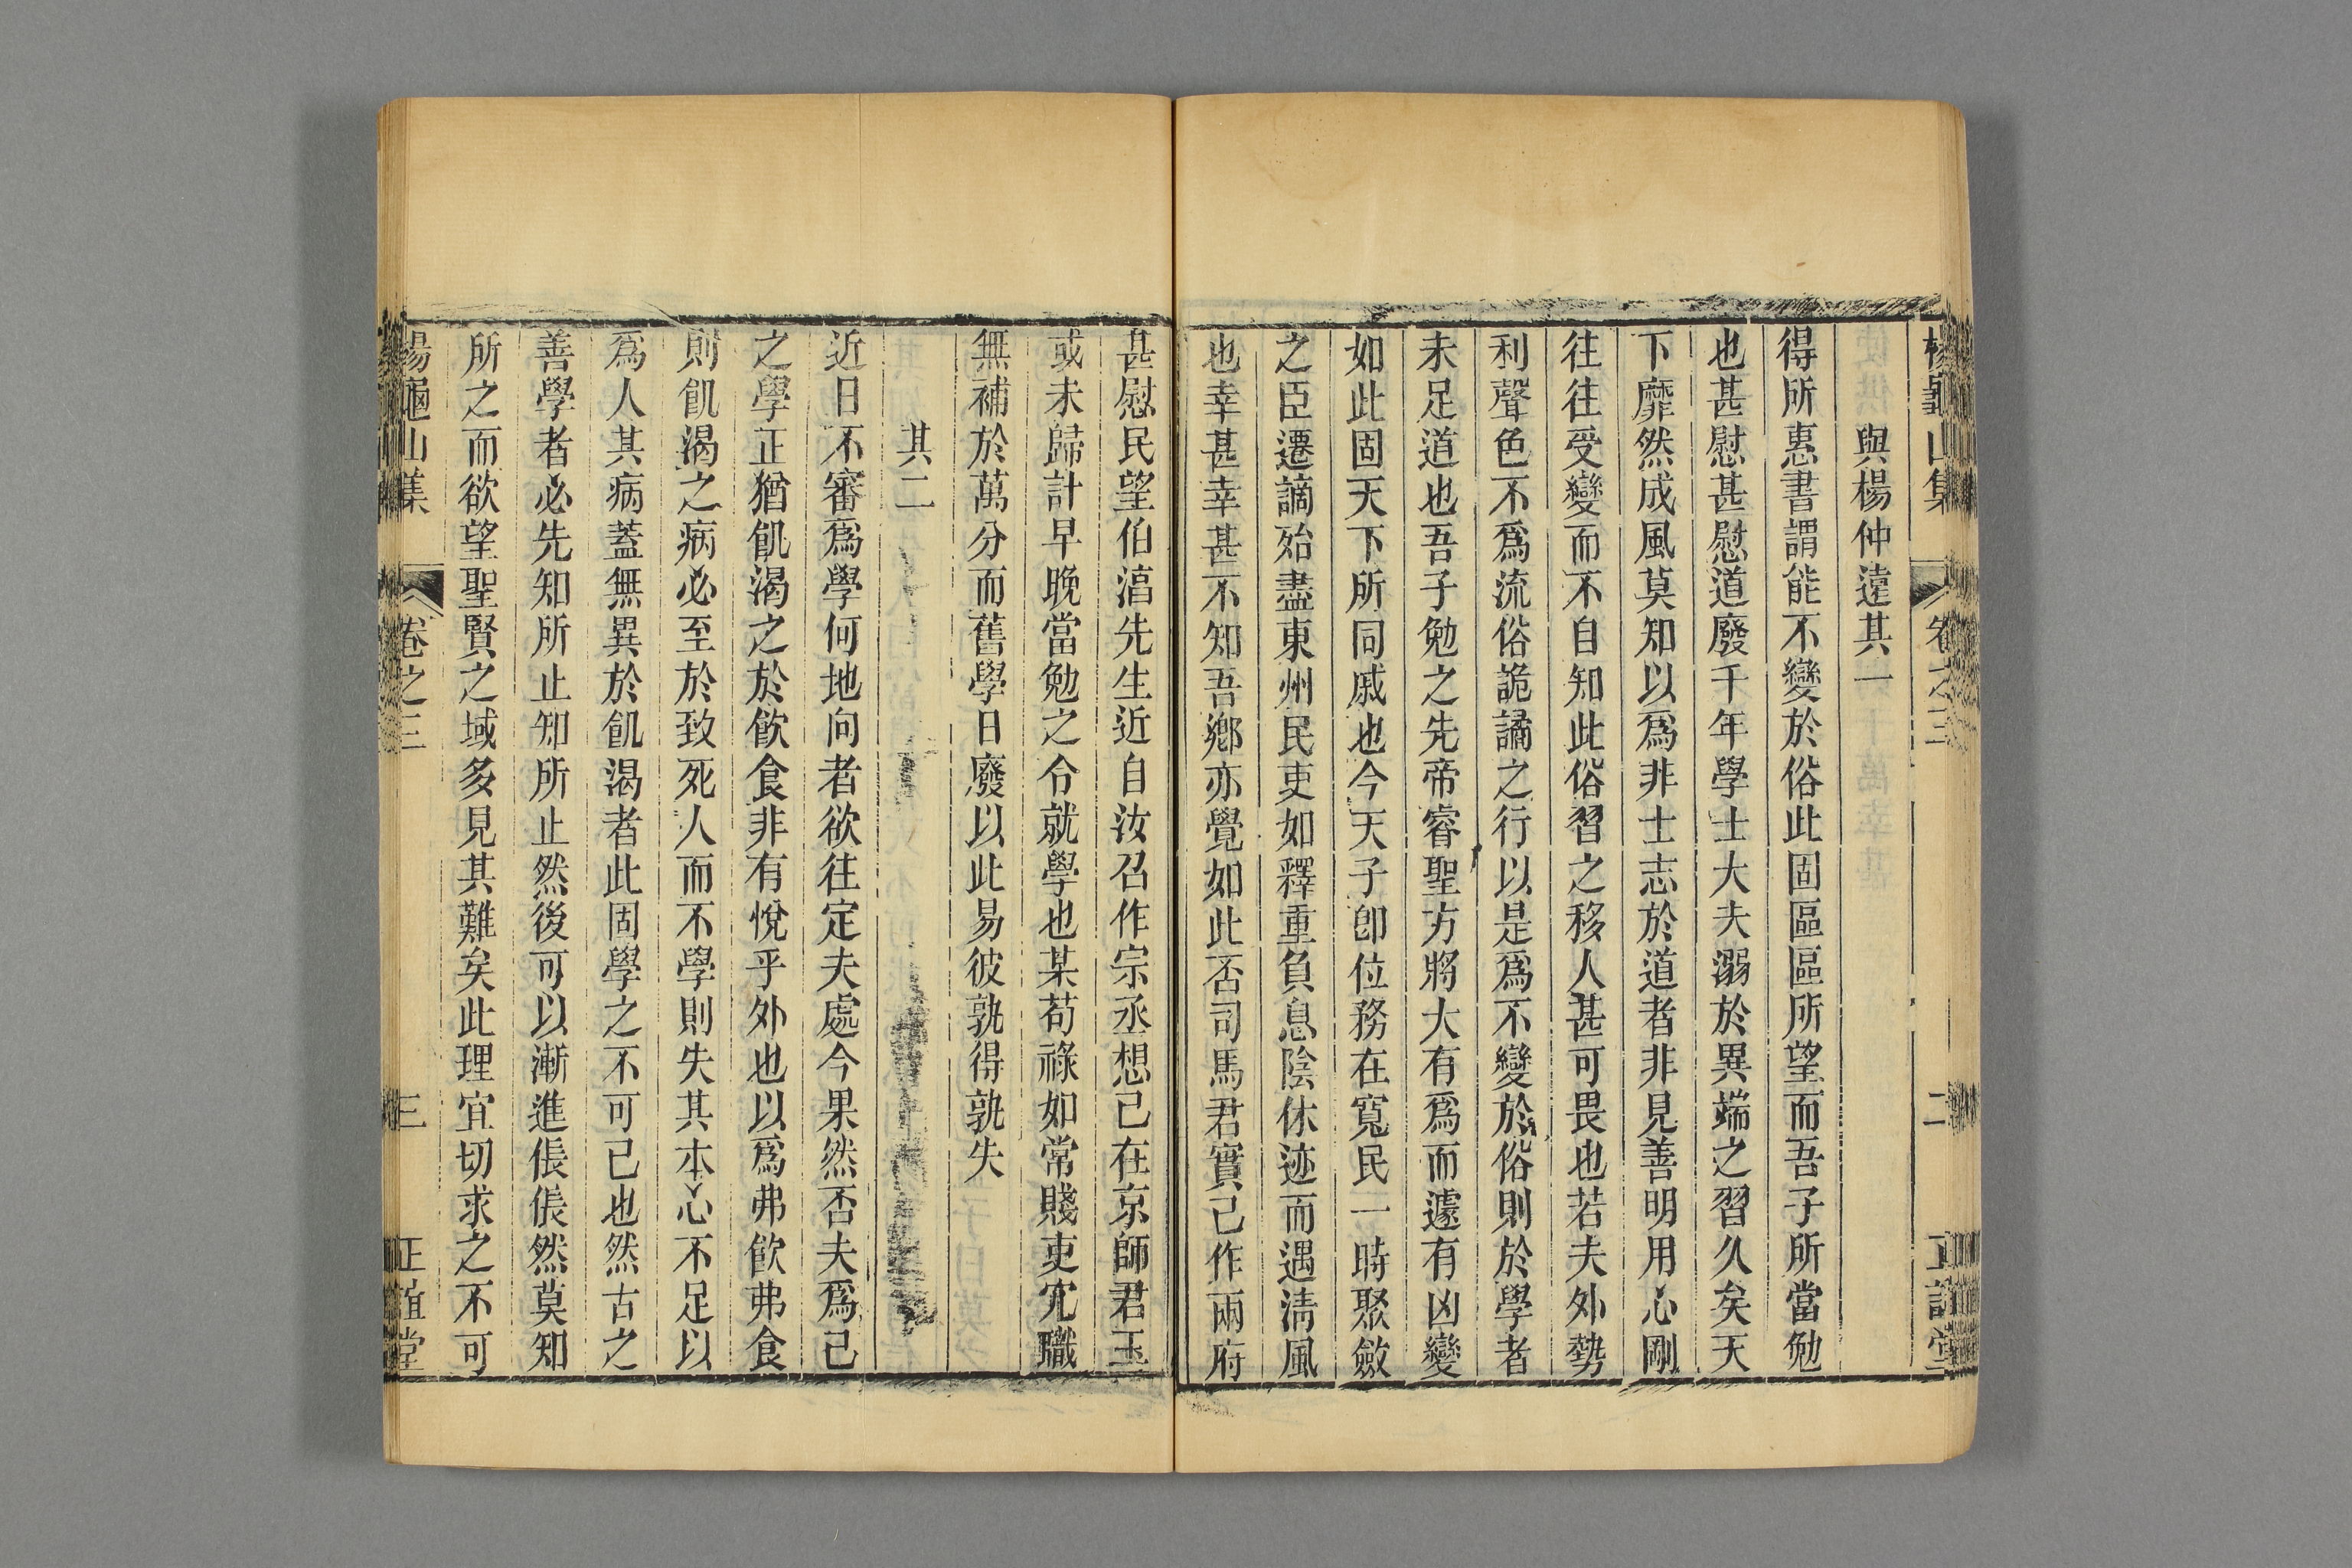 楊龜山集 卷之三 二 正誼堂
與楊仲遠其一
得所惠書謂能不變於俗此固區區所望而吾子所當勉
也甚慰甚慰道廢千年學士大夫溺於異端之習久矣天
下靡然成風莫知以爲非士志於道者非見善明用心剛
往往受變而不自知此俗習之移人甚可畏也若夫外勢
利聲色不爲流俗詭譎之行以是爲不變於俗則於學者
未足道也吾子勉之先帝睿聖方將大有爲而遽有凶變
如此固天下所同戚也今天子卽位務在寬民一時聚斂
之臣遷謫殆盡東州民吏如釋重負息陰休迹而遇淸風
也幸甚幸甚不知吾鄉亦覺如此否司馬君實已作兩府
甚慰民望伯湻先生近自汝召作宗丞想已在京師君玉
或未歸計早晚當勉之令就學也某苟祿如常賤吏宂職
無補於萬分而舊學日廢以此易彼孰得孰失
其二
近日不審爲學何地向者欲往定夫處今果然否夫爲己
之學正猶飢渴之於飮食非有悅乎外也以爲弗飮弗食
則飢渴之病必至於致死人而不學則失其本心不足以
爲人其病蓋無異於飢渴者此固學之不可已也然古之
善學者必先知所止知所止然後可以漸進倀倀然莫知
所之而欲望聖賢之域多見其難矣此理宜切求之不可
楊龜山集 卷之三 三 正誼堂